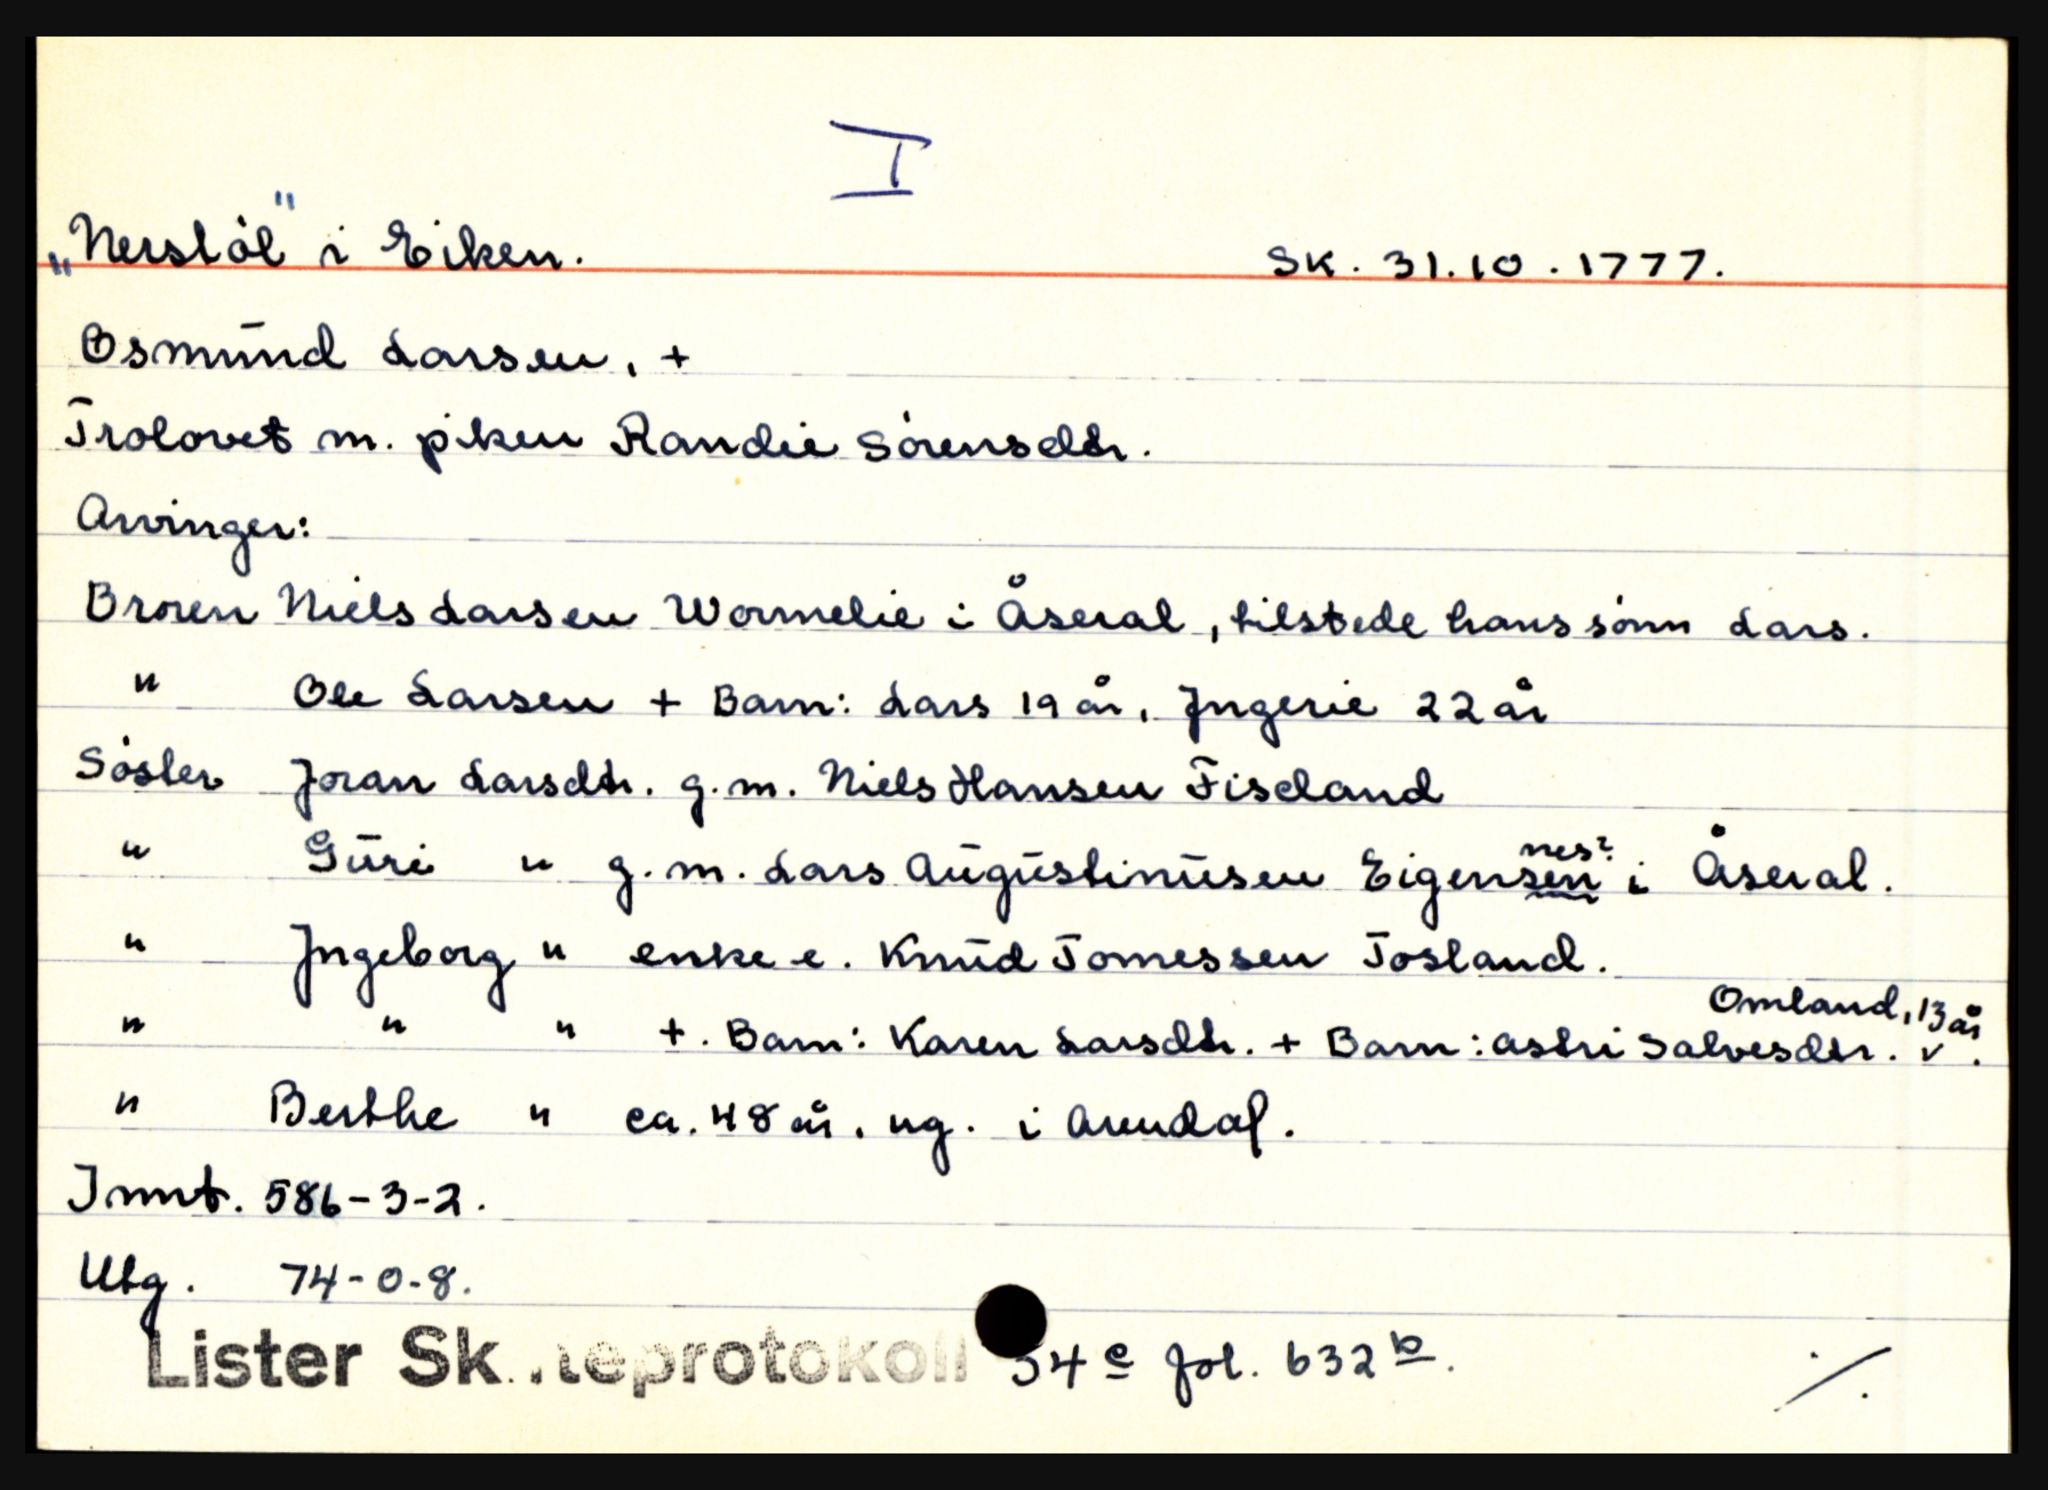 I
"Nerstöl" i Eiken. SK. 31.10.1777.
Osmund Larsen, +
Trolovet m. piken Randie Sörensdtr.
Arvinger:
Broren Niels Larsen Wormelie i Åseral, tilstede hans sönn Lars.
" Ole Larsen + Barn: Lars 19 år, Ingerie 22 år
Söster Joran Larsdtr. g.m. Niels Hansen Fiseland
" Guri " g.m. Lars Augustinusen Eigensen nes? i Åseral.
" Ingeborg " enke e. Knud Tomessen Josland.
" " " +. Barn: Karen Larsdtr. + Barn: Astri Salvesdtr. Omland, 13 år.
" Berthe " ca. 48 år, ug. i Arendal.
Innt. 586-3-2.
Utg. 74-0-8.
Lister Sk teprotokoll 34 c fol. 632 b.
./.